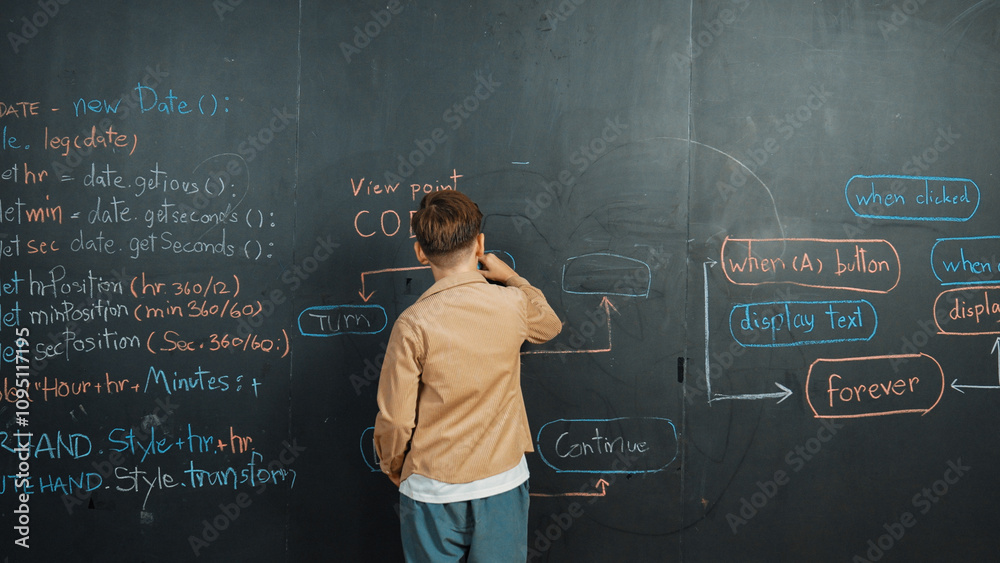 DATE - new Date ():
le. leg(date)
let hr = date.getious ();
let min = date.getseconds ():
let sec date.getSeconds ():
let hrPosition (hr.360/12)
let minPosition (min 360/60)
let secPosition (Sec. 360/60:)
"Hour+hr+ Minutes: +
HAND. Style+hr.+hr
UTEHAND. Style.transform
View point
COD
Turn
Continue
when clicked
when (A) button
display text
forever
when
display
Adobe Stock | #1095117195